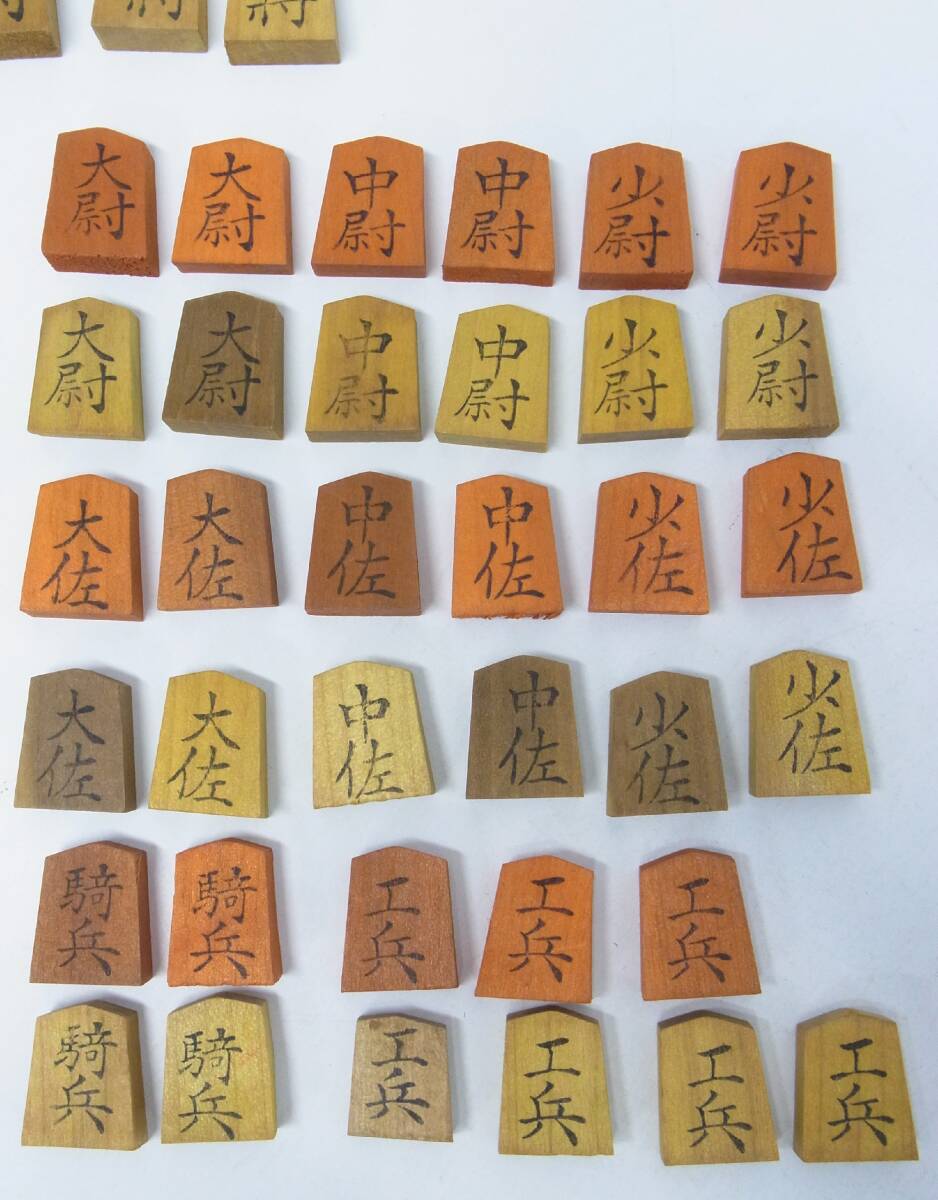 將
將
大尉
大尉
中尉
中尉
少尉
少尉
大尉
大尉
中尉
中尉
少尉
少尉
大佐
大佐
中佐
中佐
少佐
少佐
大佐
大佐
中佐
中佐
少佐
少佐
騎兵
騎兵
工兵
工兵
工兵
騎兵
騎兵
工兵
工兵
工兵
工兵